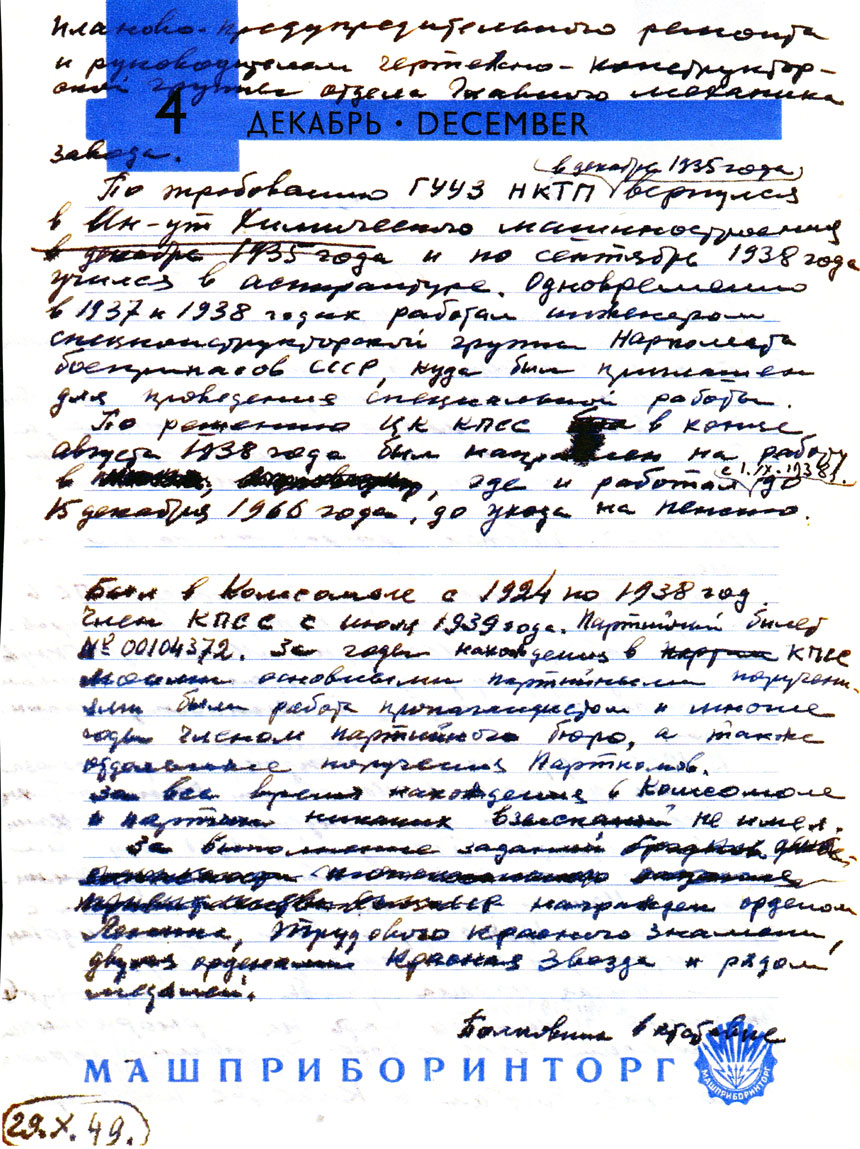 планово-предупредительного ремонта
и руководителем чертежно-конструктор-
ской группы отдела Главного механика
4 ДЕКАБРЬ • DECEMBER
завода.
в декабре 1935 года,
По требованию ГУУЗ НКТП вернулся
в Ин-ут Химического машиностроения
в декабре 1935 года и по сентябрь 1938 года
учился в аспирантуре. Одновременно
в 1937 и 1938 годах работал инженером
спецконструкторской группы Наркомата
боеприпасов СССР, куда был приглашен
для проведения специальной работы.
По решению ЦК КПСС в конце
августа 1938 года был направлен на работу
с 1.IX.1938г.
в , где и работал до
15 декабря 1966 года, до ухода на пенсию.
Был в Комсомоле с 1924 по 1938 год.
Член КПСС с июля 1939 года. Партийный билет
№ 00104372. За годы нахождения в партии КПСС
моими основными партийными поручени-
ями были работа пропагандистом и многие
годы членом партийного бюро, а также
отдельные поручения Парткомов.
За все время нахождения в Комсомоле
и партии никаких взысканий не имел.
За выполнение заданий
награжден орденом
Ленина, Трудового Красного Знамени,
двумя орденами Красная Звезда и рядом
медалей.
МАШПРИБОРИНТОРГ
МАШПРИБОРИНТОРГ
29.X.49.